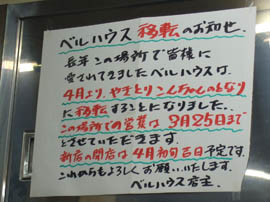 ベルハウス移転のお知せ.
長年この場所で皆様に
愛されてきましたベルハウスは.
4月より、やきとりこんちゃんのとなり
に移転することになりました.
この場所での営業は3月25日まで
とさせていただきます.
新店の開店は4月初旬吉日予定です.
これからもよろしくお願いいたします.
ベルハウス店主.